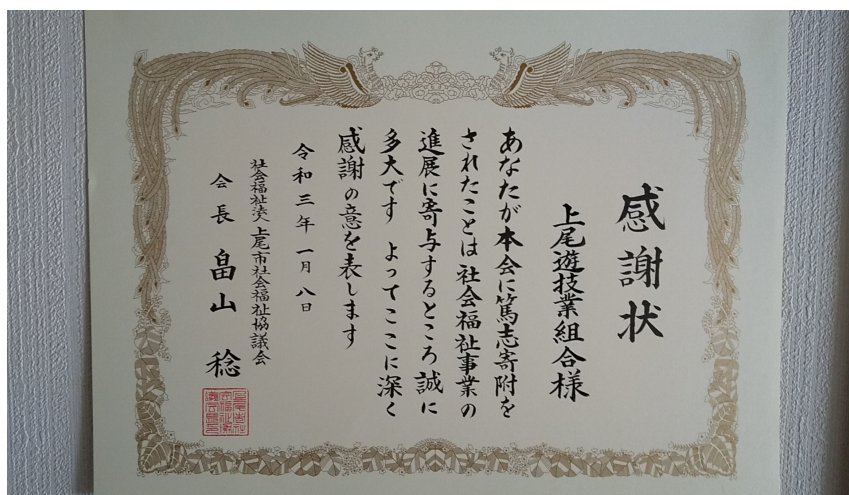 感謝状
上尾遊技業組合様
あなたが本会に篤志寄附を
されたことは社会福祉事業の
進展に寄与するところ誠に
多大です よってここに深く
感謝の意を表します
令和三年一月八日
社会福祉法人上尾市社会福祉協議会
会長 畠山 稔